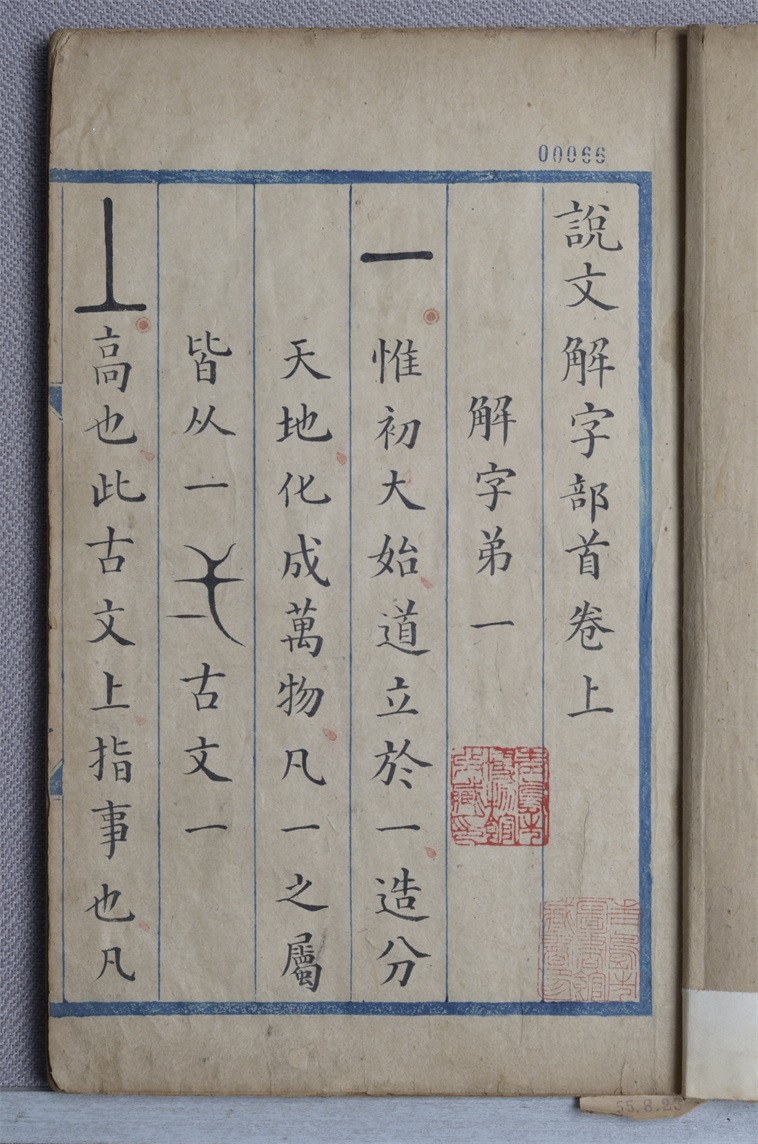 00066
說文解字部首卷上
解字弟一
一惟初大始道立於一造分
天地化成萬物凡一之屬
皆从一弌古文一
丄高也此古文上指事也凡
55.8.23